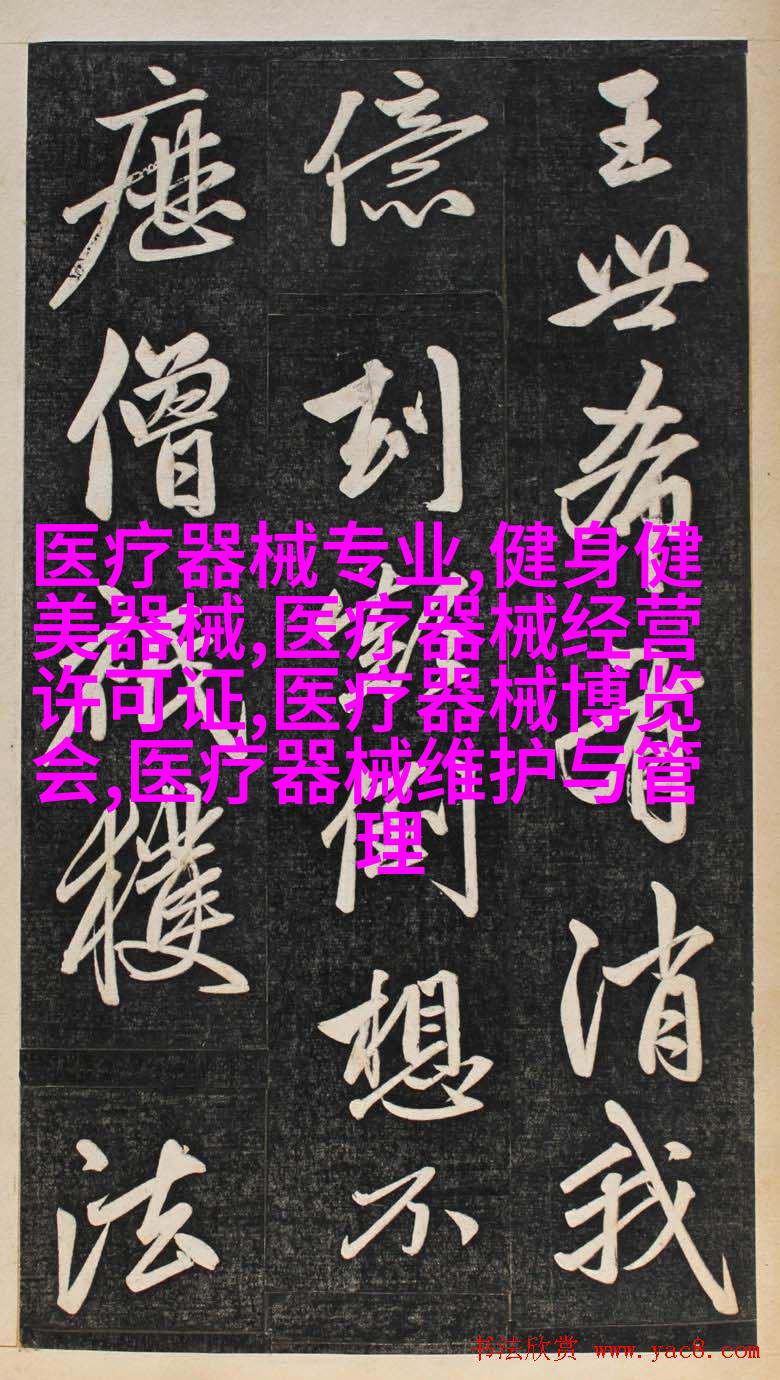 王世希有消我
億劫顛倒想不
歷僧祇穫法
医疗器械专业,健身健
美器械,医疗器械经营
许可证,医疗器械博览
会,医疗器械维护与管
理
书法欣赏 www.yac8.com